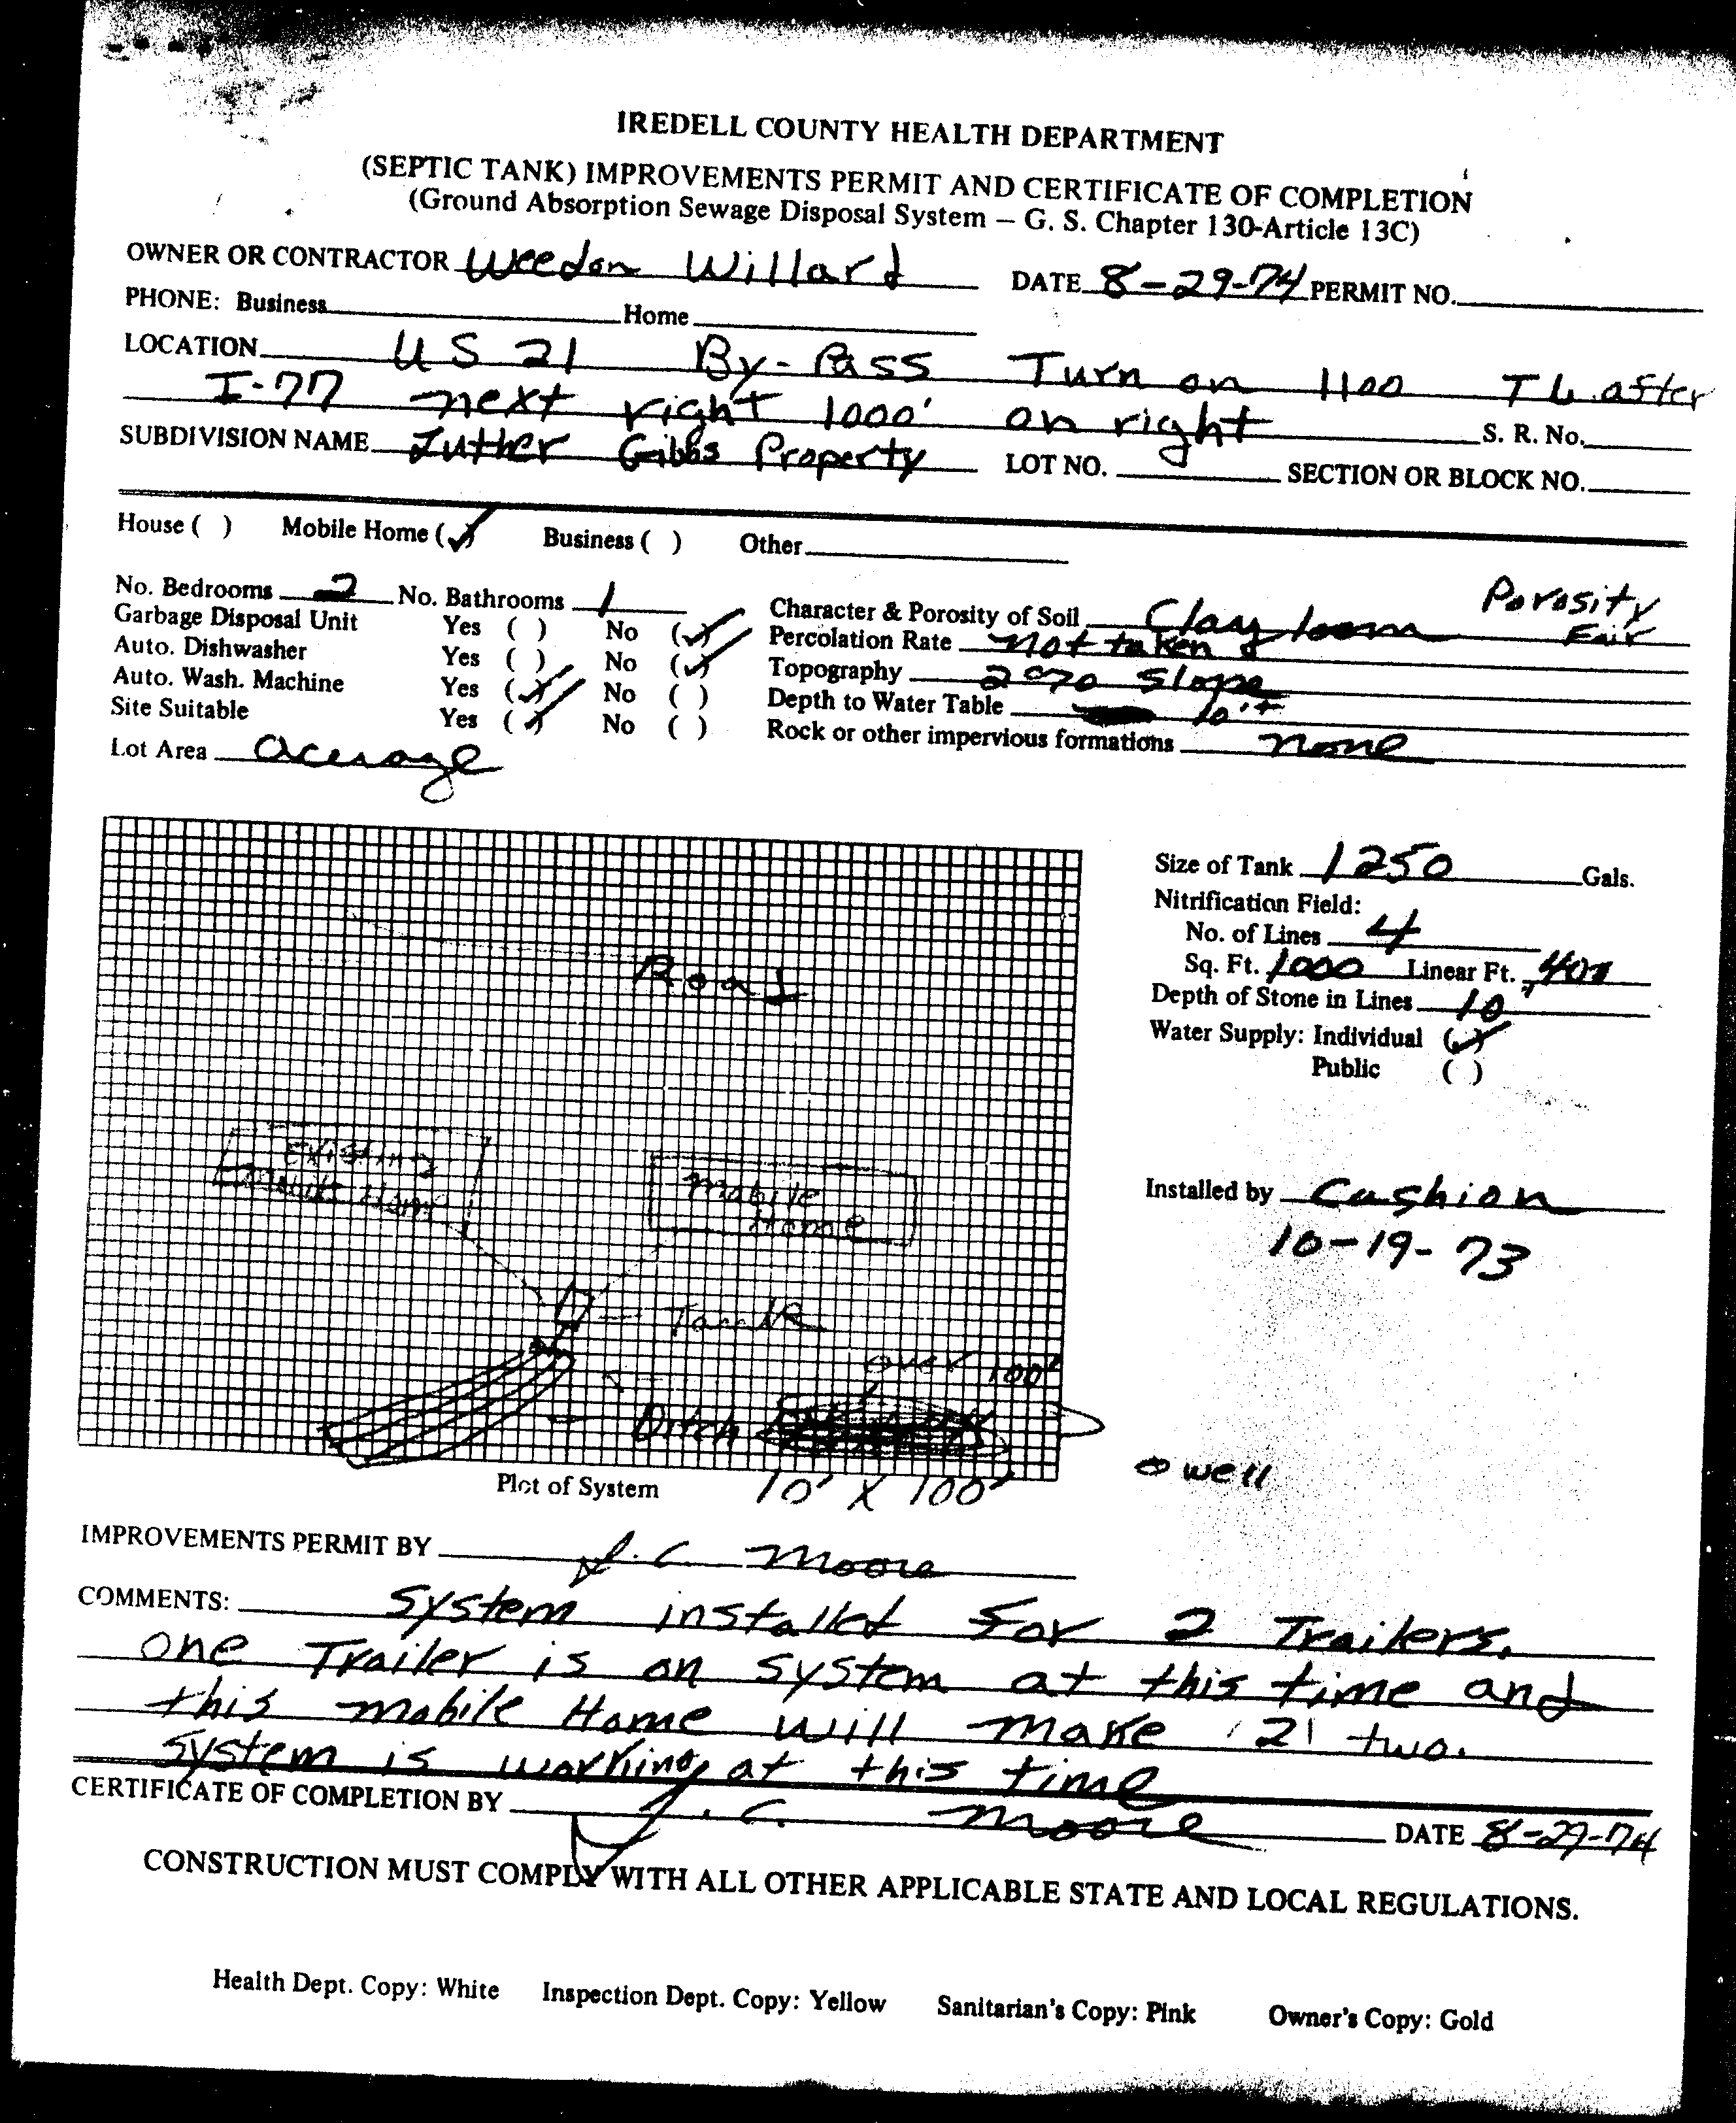 IREDELL COUNTY HEALTH DEPARTMENT
(SEPTIC TANK) IMPROVEMENTS PERMIT AND CERTIFICATE OF COMPLETION
(Ground Absorption Sewage Disposal System – G. S. Chapter 130-Article 13C)
OWNER OR CONTRACTOR Weedon Willard DATE 8-29-74 PERMIT NO.
PHONE: Business Home
LOCATION US 21 By-Pass Turn on 1100 TL after
I-77 next right 1000' on right S. R. No.
SUBDIVISION NAME Luther Gibbs Property LOT NO. SECTION OR BLOCK NO.
House ( ) Mobile Home (✓) Business ( ) Other
No. Bedrooms 2 No. Bathrooms 1
Garbage Disposal Unit Yes ( ) No (✓)
Auto. Dishwasher Yes ( ) No (✓)
Auto. Wash. Machine Yes (✓) No ( )
Site Suitable Yes (✓) No ( )
Lot Area acerage
Character & Porosity of Soil Clay loam Porosity Fair
Percolation Rate not taken
Topography 2% Slope
Depth to Water Table 10'+
Rock or other impervious formations none
Road
Existing
Mobile Home
Mobile
Home
Tank
over 100'
Ditch
10' X 100'
Plot of System
well
Size of Tank 1250 Gals.
Nitrification Field:
No. of Lines 4
Sq. Ft. 1000 Linear Ft. 400
Depth of Stone in Lines 10"
Water Supply: Individual (✓)
Public ( )
Installed by Cashion
10-19-73
IMPROVEMENTS PERMIT BY J.C. Moore
COMMENTS: System installed for 2 Trailers.
one Trailer is on system at this time and
this mobile Home will make 2 two.
system is working at this time
CERTIFICATE OF COMPLETION BY J.C. Moore DATE 8-29-74
CONSTRUCTION MUST COMPLY WITH ALL OTHER APPLICABLE STATE AND LOCAL REGULATIONS.
Health Dept. Copy: White Inspection Dept. Copy: Yellow Sanitarian's Copy: Pink Owner's Copy: Gold